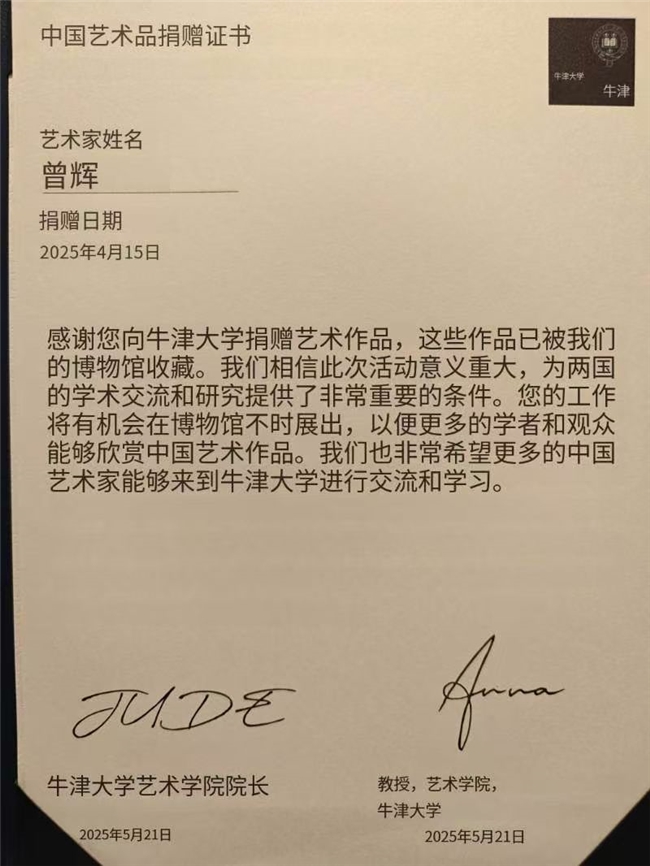 中国艺术品捐赠证书
牛津大学
牛津
艺术家姓名
曾辉
捐赠日期
2025年4月15日
感谢您向牛津大学捐赠艺术作品，这些作品已被我们
的博物馆收藏。我们相信此次活动意义重大，为两国
的学术交流和研究提供了非常重要的条件。您的工作
将有机会在博物馆不时展出，以便更多的学者和观众
能够欣赏中国艺术作品。我们也非常希望更多的中国
艺术家能够来到牛津大学进行交流和学习。
JUDE
Anna
牛津大学艺术学院院长
2025年5月21日
教授，艺术学院，
牛津大学
2025年5月21日